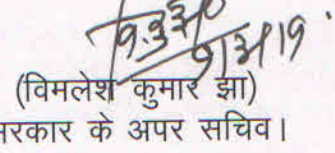 (विमलेश कुमार झा)
सरकार के अपर सचिव।